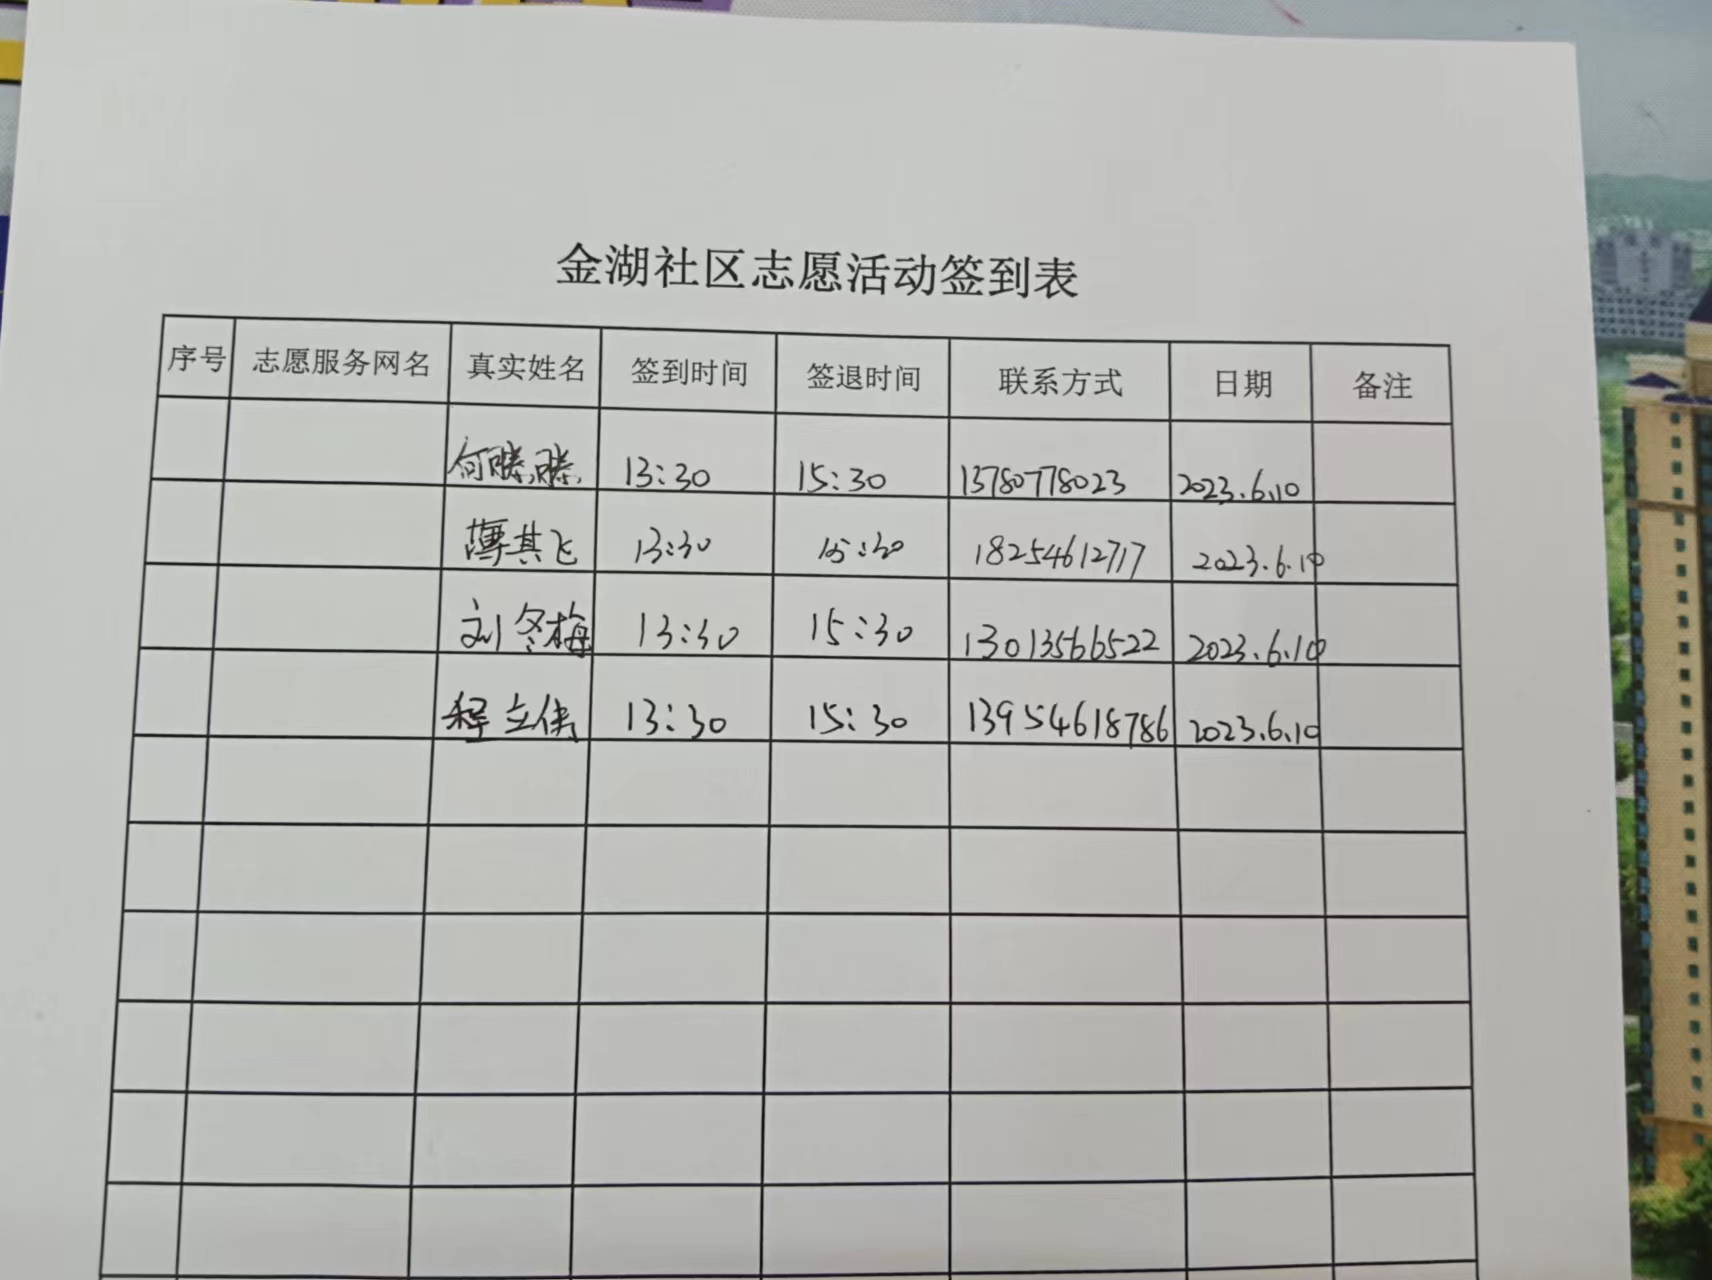 金湖社区志愿活动签到表
序号 志愿服务网名 真实姓名 签到时间 签退时间 联系方式 日期 备注
何腾腾 13:30 15:30 13780778023 2023.6.10
薄其飞 13:30 15:30 18254612717 2023.6.10
刘冬梅 13:30 15:30 13013566522 2023.6.10
程立伟 13:30 15:30 13954618786 2023.6.10